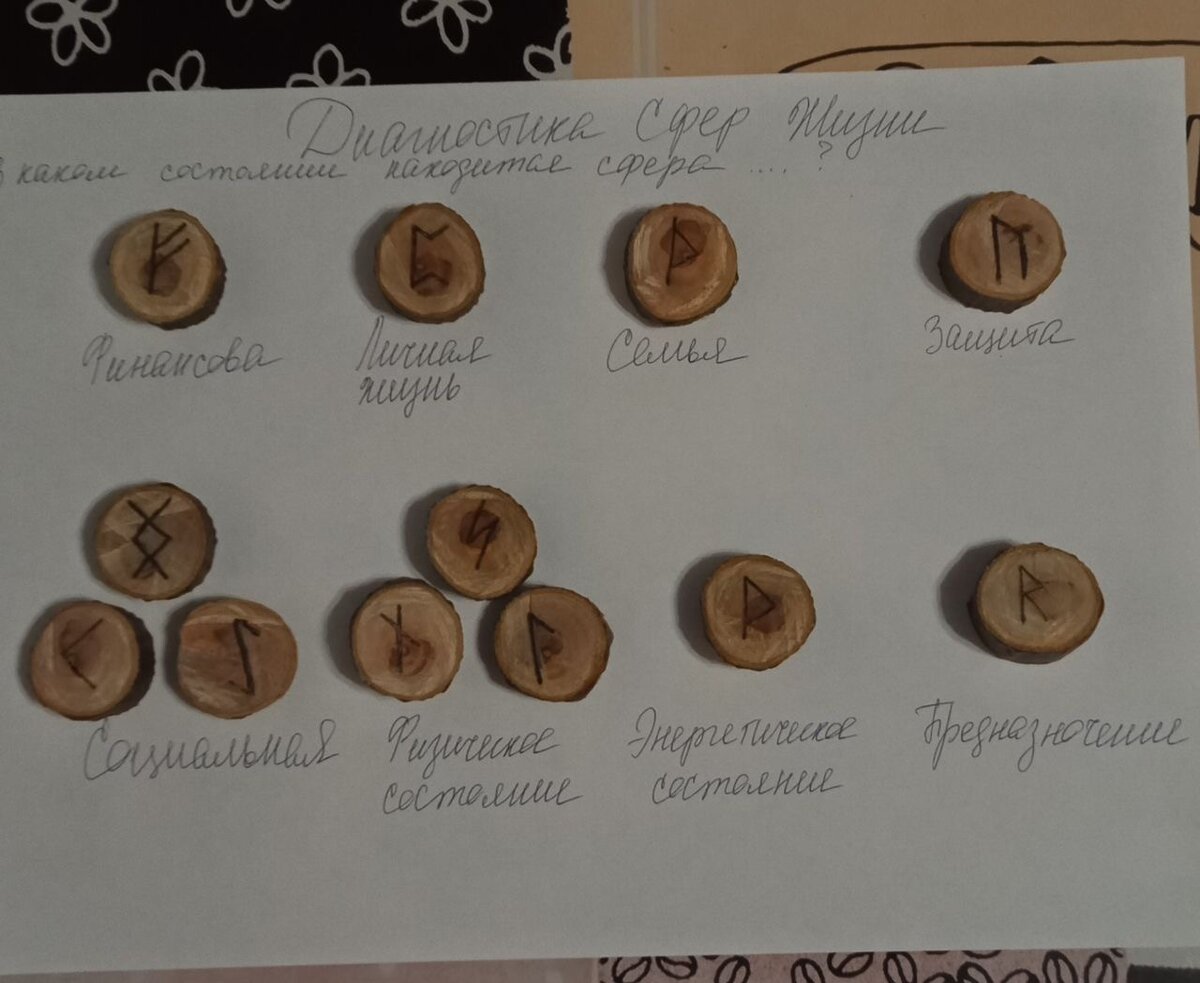 Диагностика Сфер Жизни
В каком состоянии находится сфера .... ?
ᚠ ᛈ ᚦ
Финансова Личная жизнь Семья Защита
ᛝ ᛊ
ᚲ ᛇ ᚾ ᛚ ᚦ ᚱ
Социальная Физическое состояние Энергетическое состояние Предназначение